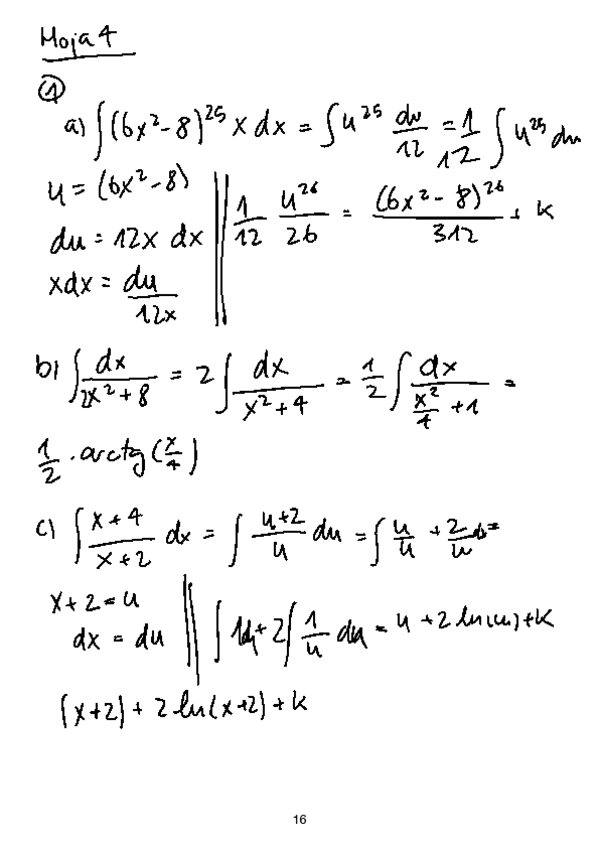 Moja 4
①
a) ∫(6x²-8)²⁵ x dx = ∫u²⁵ du/12 = 1/12 ∫u²⁵ du
u = (6x²-8)
du = 12x dx
xdx = du/12x
|| 1/12 u²⁶/26 = (6x²-8)²⁶/312 + k
b) ∫dx/(2x²+8) = 2∫dx/(x²+4) = 1/2 ∫dx/(x²/4 +1) =
1/2 · arctg(x/4)
c) ∫(x+4)/(x+2) dx = ∫(u+2)/u du = ∫u/u + 2/u du =
x+2=u
dx = du
|| ∫1du + 2∫1/u du = u + 2 ln(u) + k
(x+2) + 2 ln(x+2) + k
16